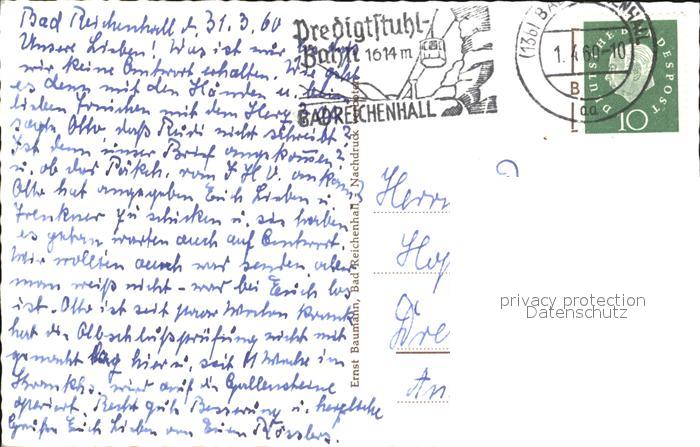 Bad Reichenhall d. 31.3.60
Unsere Lieben! Was ist nur
wir keine Antwort erhalten. Wie geht
es denn mit den Händen u.
lieben Frauchen mit dem Herz?
sagte Otto daß Rudi nicht schreibt?
Ist denn unser Brief angekommen?
u. ob das Päkch. vom ankam?
Otto hat angegeben Euch Lieben u.
zu schicken u. sie haben
es getan warten auch auf Antwort.
Wir wollten auch was senden aber
man weiß nicht - was bei Euch los
ist. Otto ist seit paar Wochen krank
hat die Abschlußprüfung nicht mit
gemacht lag hier u. seit Woche im
Krankhs. wird auf die Gallensteine
operiert. Recht gute Besserung u. herzliche
Grüße Euch Lieben von Euren
Predigtstuhl-
Bahn 1614 m
BAD REICHENHALL
(13b) BAD
1.4.60-10
B
aa
DEUTSCHE BUNDESPOST
10
Ernst Baumann, Bad Reichenhall, Nachdruck
Herrn
Ho
Dre
An
privacy protection
Datenschutz